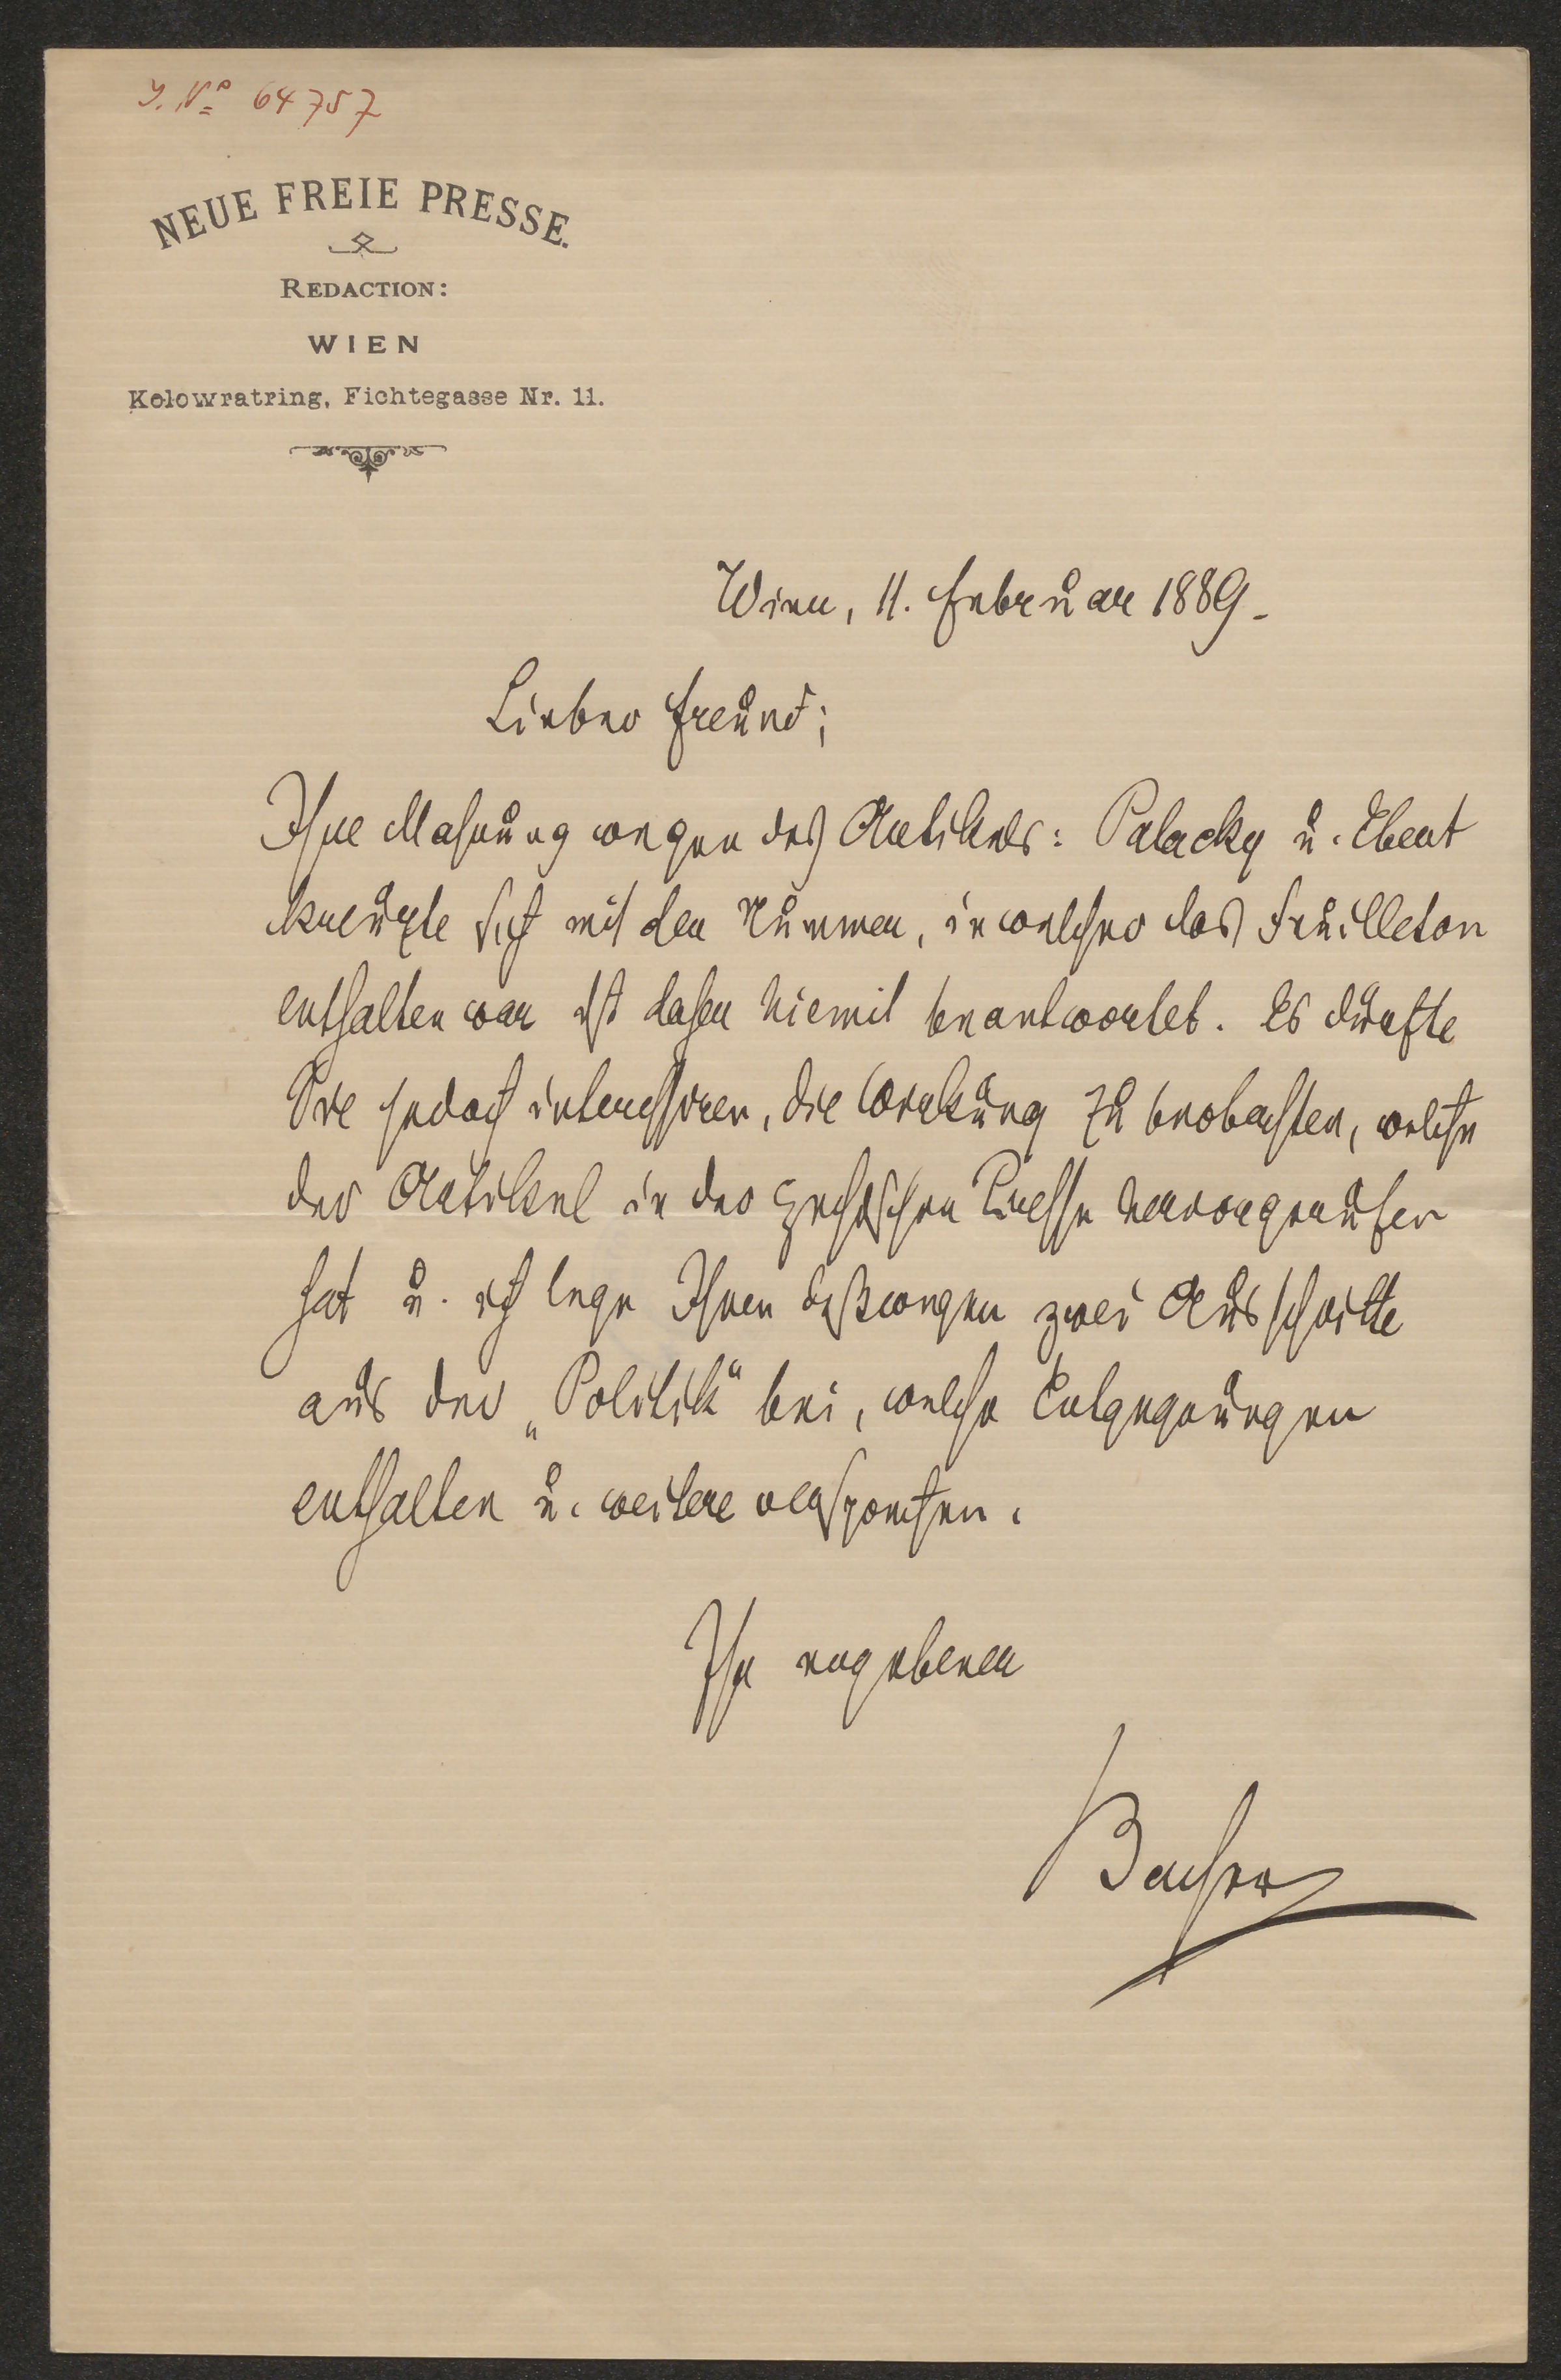 J. No 64757
NEUE FREIE PRESSE.
REDACTION:
WIEN
Kolowratring, Fichtegasse Nr. 11.
Wien, 11. Februar 1889.
Lieber Freund;
Ihre Mahnung wegen des Artikels: Palacky u. Ebert
kreuzte sich mit der Nummer, in welcher das Feuilleton
enthalten war ist daher hiemit beantwortet. Es dürfte
Sie jedoch interessiren, die Wirkung zu beobachten, welche
der Artikel in der czechischen Presse hervorgerufen
hat u. ich lege Ihnen deßwegen zwei Ausschnitte
aus der „Politik“ bei, welche Entgegnungen
enthalten u. weitere versprechen.
Ihr ergebener
Bacher